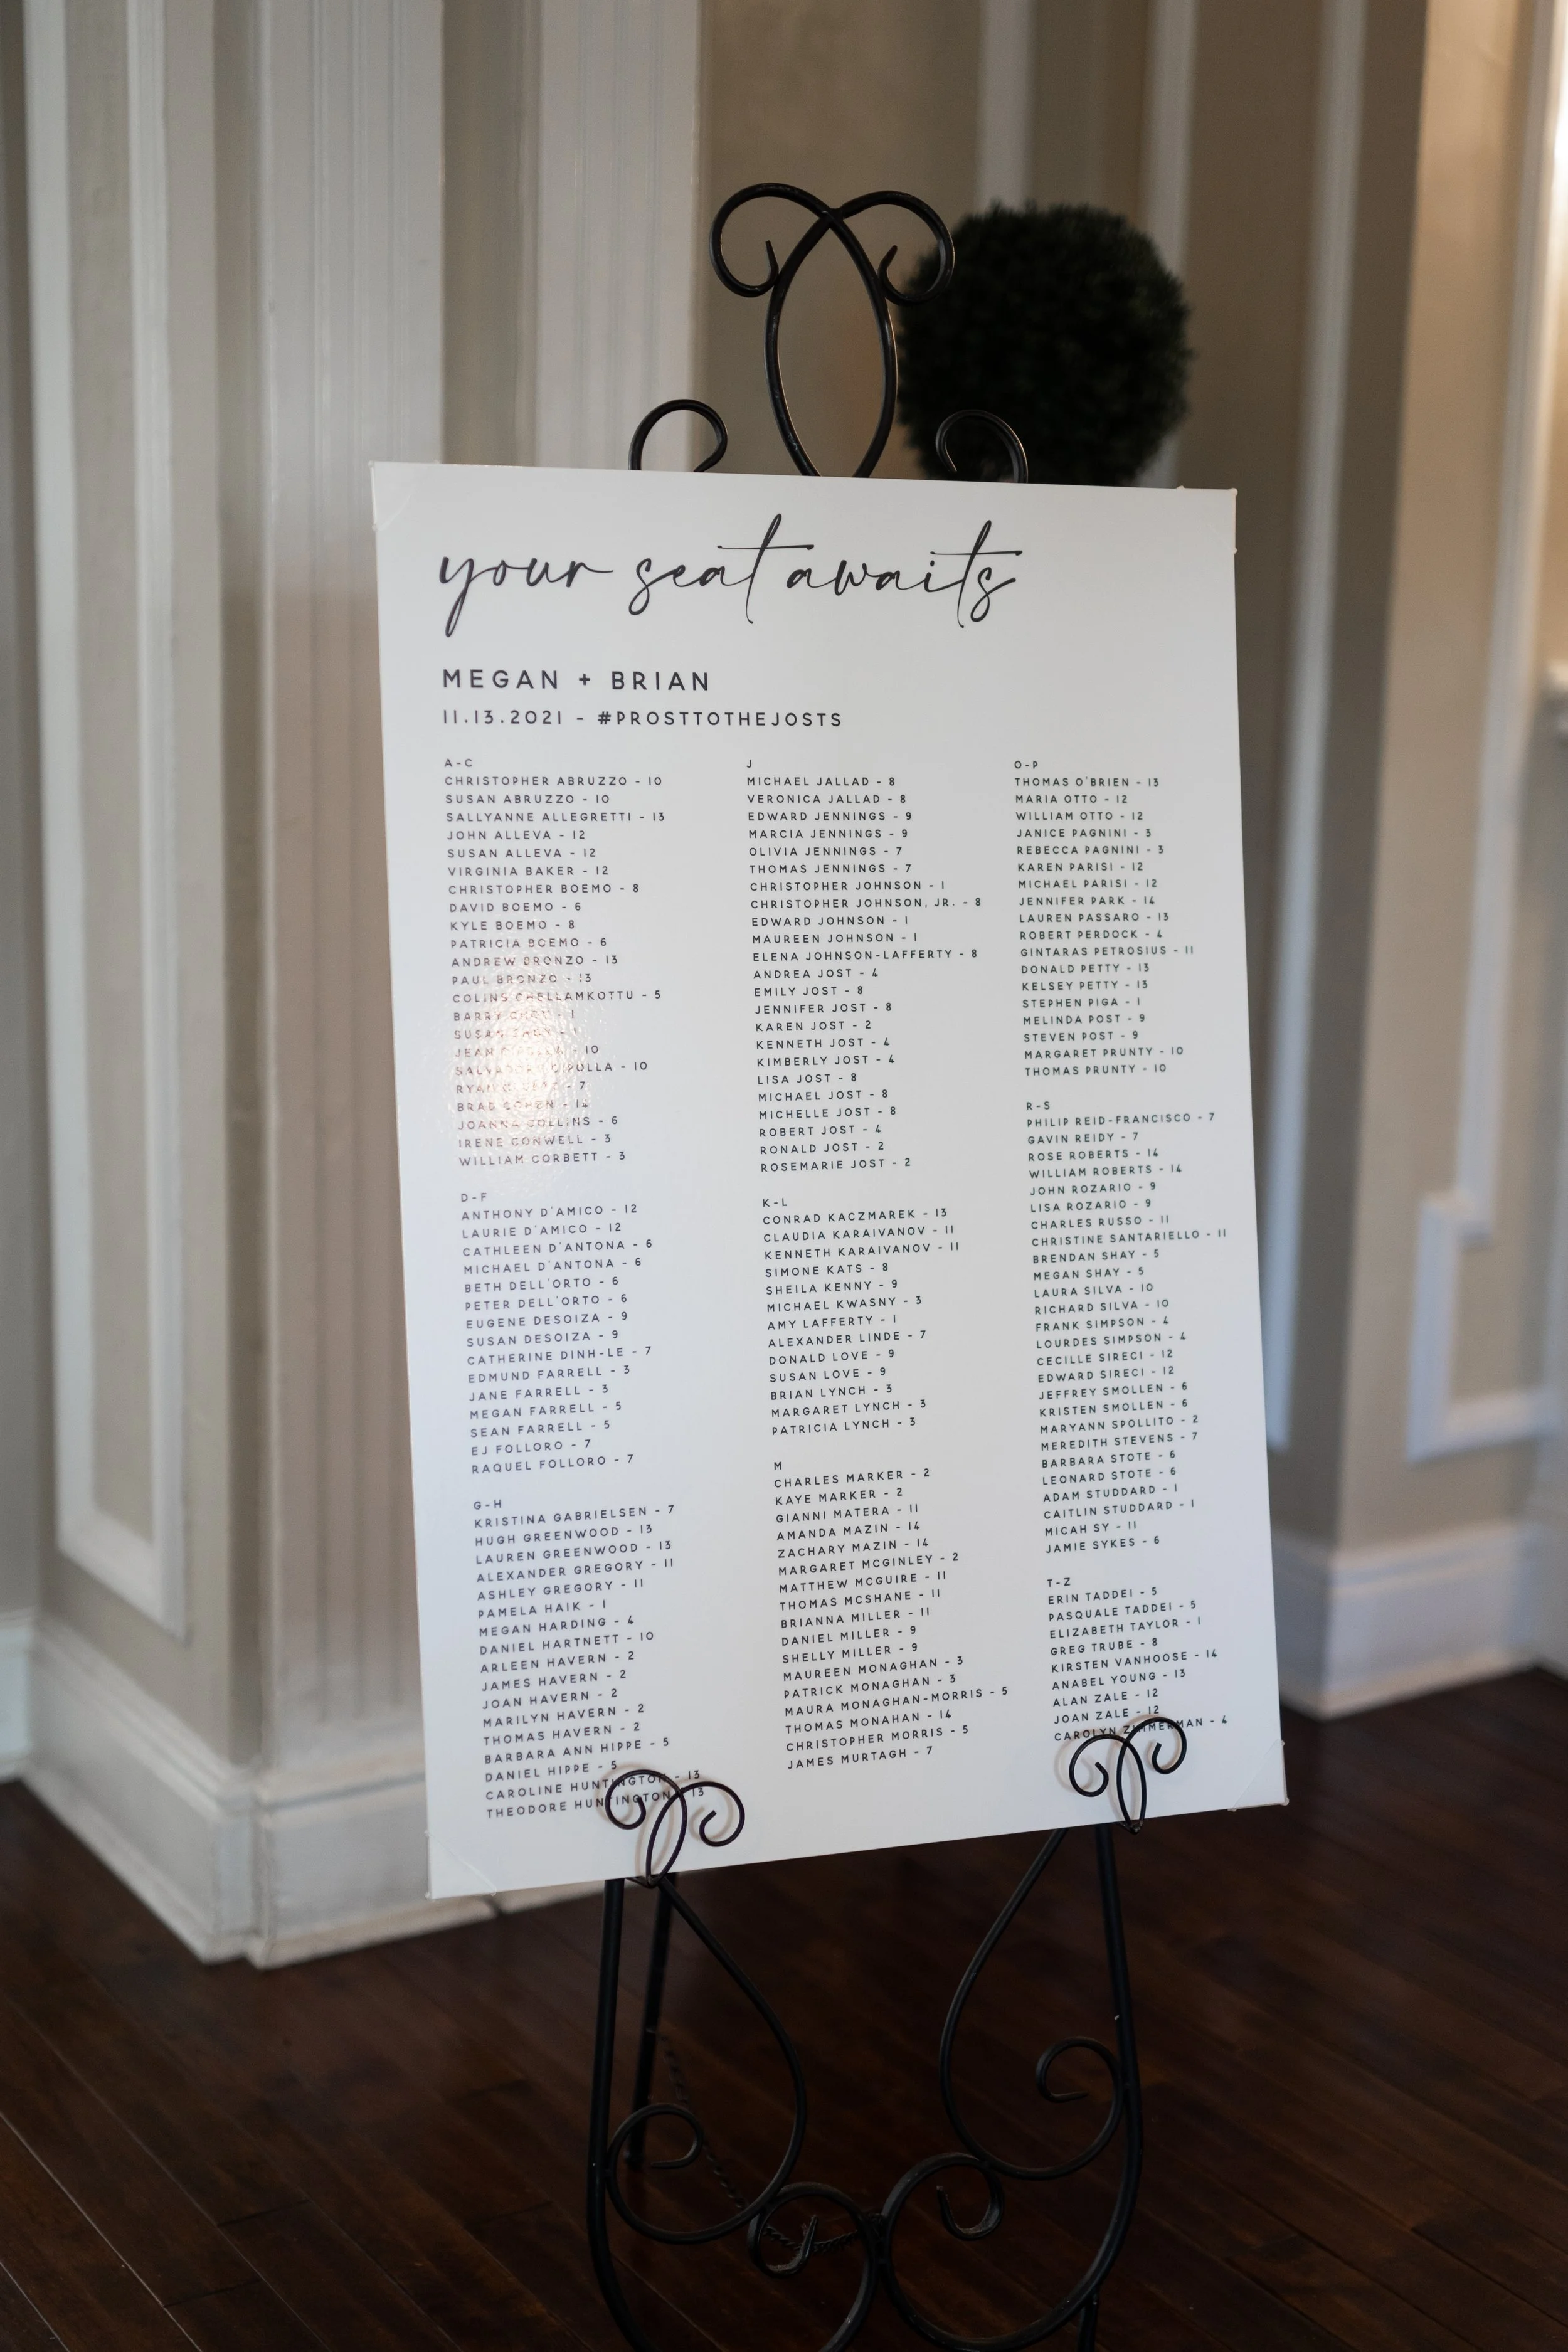 your seat awaits
MEGAN + BRIAN
11.13.2021 - #PROSTTOTHEJOSTS
A-C
CHRISTOPHER ABRUZZO - 10
SUSAN ABRUZZO - 10
SALLYANNE ALLEGRETTI - 13
JOHN ALLEVA - 12
SUSAN ALLEVA - 12
VIRGINIA BAKER - 12
CHRISTOPHER BOEMO - 8
DAVID BOEMO - 6
KYLE BOEMO - 8
PATRICIA BOEMO - 6
ANDREW BRONZO - 13
PAUL BRONZO - 13
COLINS CHELLAMKOTTU - 5
BARRY - 1
SUSAN
JEAN CIPULLA - 10
SALVADORE CIPULLA - 10
RYAN - 7
BRAD COHEN - 14
JOANNA COLLINS - 6
IRENE CONWELL - 3
WILLIAM CORBETT - 3
D-F
ANTHONY D'AMICO - 12
LAURIE D'AMICO - 12
CATHLEEN D'ANTONA - 6
MICHAEL D'ANTONA - 6
BETH DELL'ORTO - 6
PETER DELL'ORTO - 6
EUGENE DESOIZA - 9
SUSAN DESOIZA - 9
CATHERINE DINH-LE - 7
EDMUND FARRELL - 3
JANE FARRELL - 3
MEGAN FARRELL - 5
SEAN FARRELL - 5
EJ FOLLORO - 7
RAQUEL FOLLORO - 7
G-H
KRISTINA GABRIELSEN - 7
HUGH GREENWOOD - 13
LAUREN GREENWOOD - 13
ALEXANDER GREGORY - 11
ASHLEY GREGORY - 11
PAMELA HAIK - 1
MEGAN HARDING - 4
DANIEL HARTNETT - 10
ARLEEN HAVERN - 2
JAMES HAVERN - 2
JOAN HAVERN - 2
MARILYN HAVERN - 2
THOMAS HAVERN - 2
BARBARA ANN HIPPE - 5
DANIEL HIPPE - 5
CAROLINE HUNTINGTON - 13
THEODORE HUNTINGTON - 13
J
MICHAEL JALLAD - 8
VERONICA JALLAD - 8
EDWARD JENNINGS - 9
MARCIA JENNINGS - 9
OLIVIA JENNINGS - 7
THOMAS JENNINGS - 7
CHRISTOPHER JOHNSON - 1
CHRISTOPHER JOHNSON, JR. - 8
EDWARD JOHNSON - 1
MAUREEN JOHNSON - 1
ELENA JOHNSON-LAFFERTY - 8
ANDREA JOST - 4
EMILY JOST - 8
JENNIFER JOST - 8
KAREN JOST - 2
KENNETH JOST - 4
KIMBERLY JOST - 4
LISA JOST - 8
MICHAEL JOST - 8
MICHELLE JOST - 8
ROBERT JOST - 4
RONALD JOST - 2
ROSEMARIE JOST - 2
K-L
CONRAD KACZMAREK - 13
CLAUDIA KARAIVANOV - 11
KENNETH KARAIVANOV - 11
SIMONE KATS - 8
SHEILA KENNY - 9
MICHAEL KWASNY - 3
AMY LAFFERTY - 1
ALEXANDER LINDE - 7
DONALD LOVE - 9
SUSAN LOVE - 9
BRIAN LYNCH - 3
MARGARET LYNCH - 3
PATRICIA LYNCH - 3
M
CHARLES MARKER - 2
KAYE MARKER - 2
GIANNI MATERA - 11
AMANDA MAZIN - 14
ZACHARY MAZIN - 14
MARGARET MCGINLEY - 2
MATTHEW MCGUIRE - 11
THOMAS MCSHANE - 11
BRIANNA MILLER - 11
DANIEL MILLER - 9
SHELLY MILLER - 9
MAUREEN MONAGHAN - 3
PATRICK MONAGHAN - 3
MAURA MONAGHAN-MORRIS - 5
THOMAS MONAHAN - 14
CHRISTOPHER MORRIS - 5
JAMES MURTAGH - 7
O-P
THOMAS O'BRIEN - 13
MARIA OTTO - 12
WILLIAM OTTO - 12
JANICE PAGNINI - 3
REBECCA PAGNINI - 3
KAREN PARISI - 12
MICHAEL PARISI - 12
JENNIFER PARK - 14
LAUREN PASSARO - 13
ROBERT PERDOCK - 4
GINTARAS PETROSIUS - 11
DONALD PETTY - 13
KELSEY PETTY - 13
STEPHEN PIGA - 1
MELINDA POST - 9
STEVEN POST - 9
MARGARET PRUNTY - 10
THOMAS PRUNTY - 10
R-S
PHILIP REID-FRANCISCO - 7
GAVIN REIDY - 7
ROSE ROBERTS - 14
WILLIAM ROBERTS - 14
JOHN ROZARIO - 9
LISA ROZARIO - 9
CHARLES RUSSO - 11
CHRISTINE SANTARIELLO - 11
BRENDAN SHAY - 5
MEGAN SHAY - 5
LAURA SILVA - 10
RICHARD SILVA - 10
FRANK SIMPSON - 4
LOURDES SIMPSON - 4
CECILLE SIRECI - 12
EDWARD SIRECI - 12
JEFFREY SMOLLEN - 6
KRISTEN SMOLLEN - 6
MARYANN SPOLLITO - 2
MEREDITH STEVENS - 7
BARBARA STOTE - 6
LEONARD STOTE - 6
ADAM STUDDARD - 1
CAITLIN STUDDARD - 1
MICAH SY - 11
JAMIE SYKES - 6
T-Z
ERIN TADDEI - 5
PASQUALE TADDEI - 5
ELIZABETH TAYLOR - 1
GREG TRUBE - 8
KIRSTEN VANHOOSE - 14
ANABEL YOUNG - 13
ALAN ZALE - 12
JOAN ZALE - 12
CAROLYN ZIMMERMAN - 4